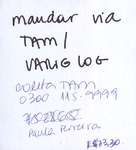 mandar via
TAM/
VARIG LOG
COLETA TAM
0300 115-9999
Paula Ferreira
R$73,30.